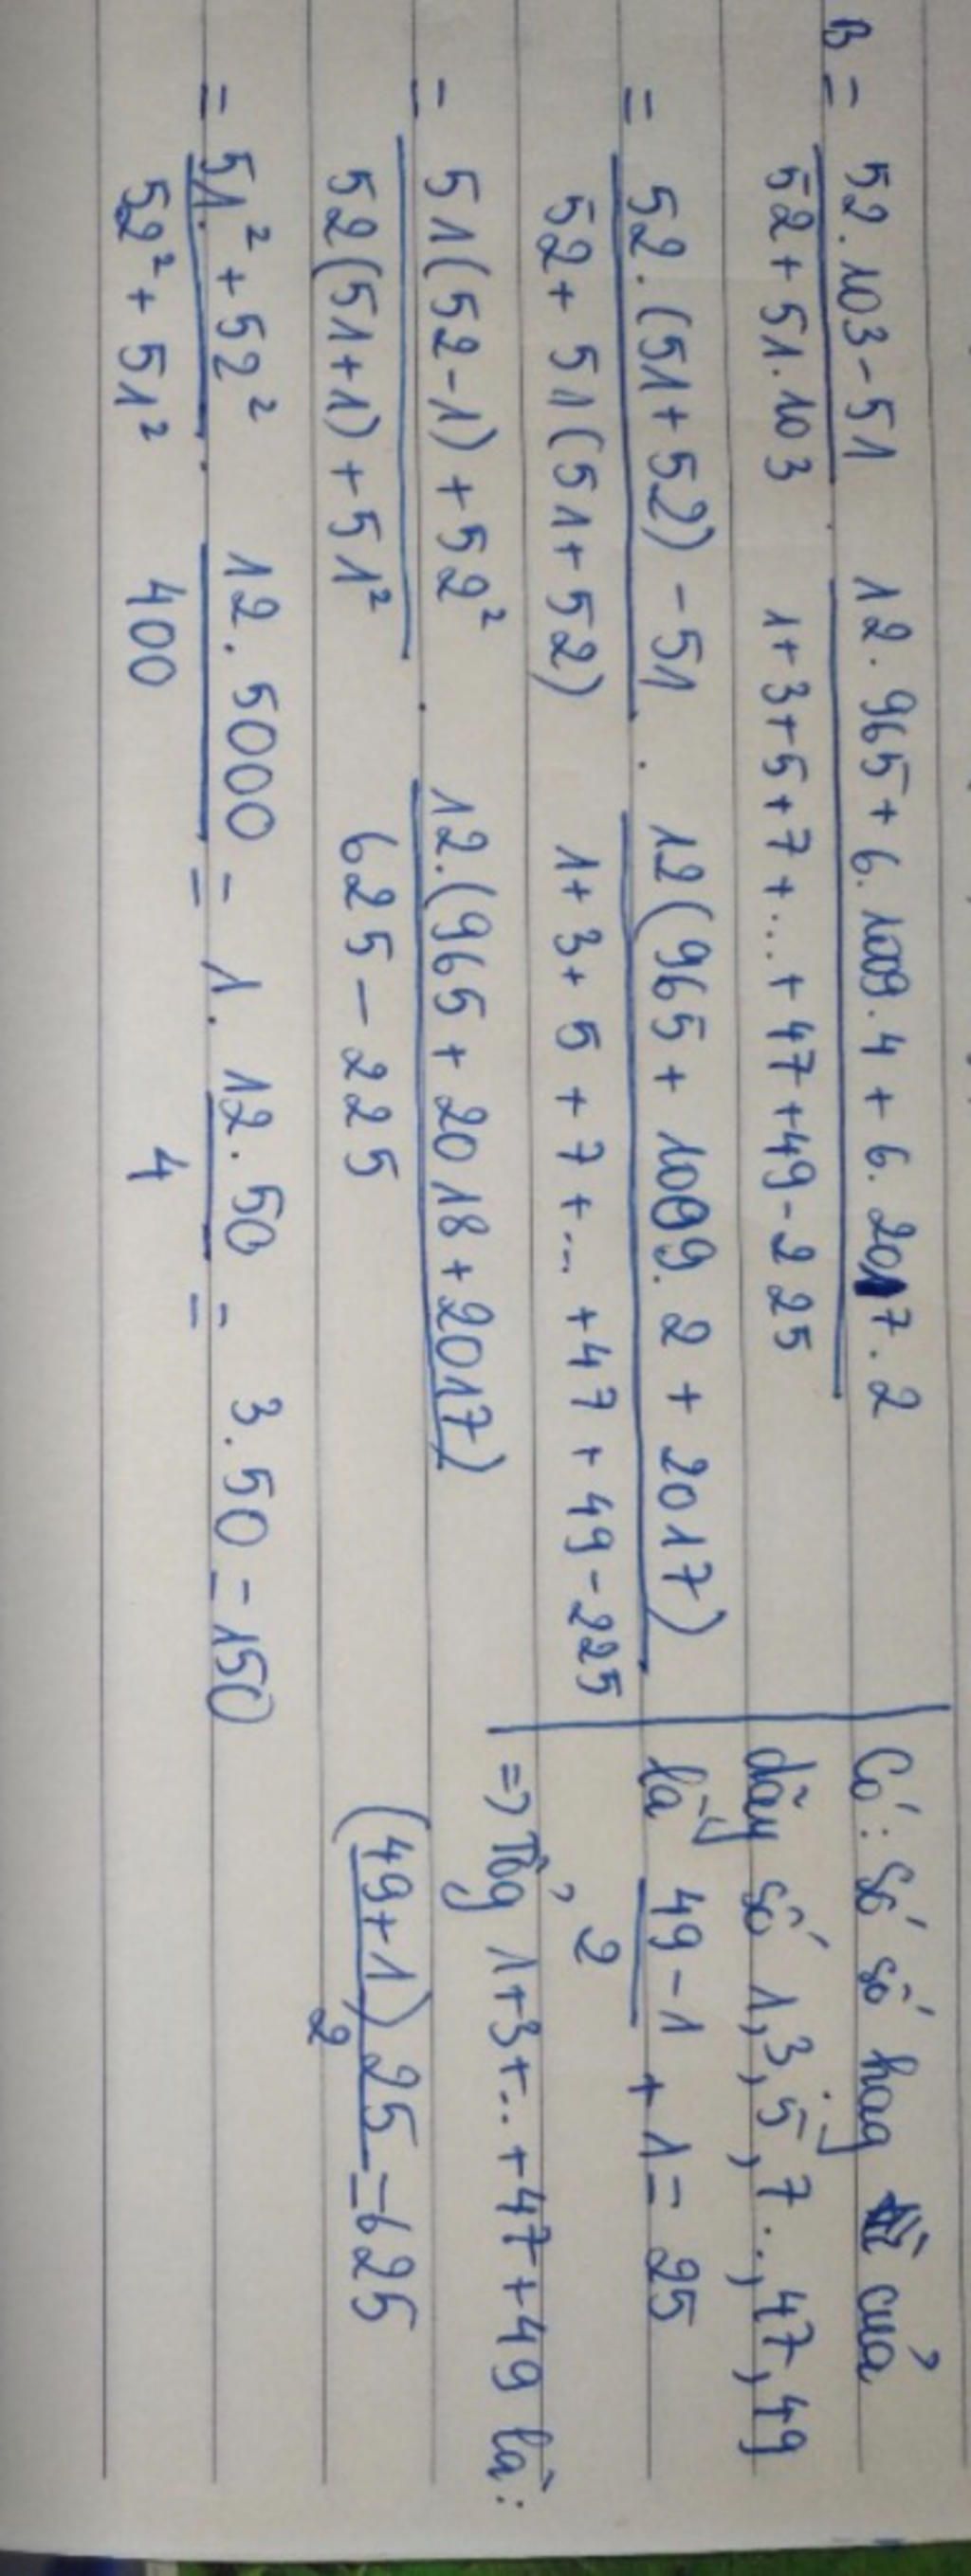 B = 52.103-51 / 52+51.103 . 12.965+6.1009.4+6.2017.2 / 1+3+5+7+...+47+49-225
= 52.(51+52)-51 / 52+51(51+52) . 12(965+1009.2+2017) / 1+3+5+7+...+47+49-225
= 51(52-1)+52² / 52(51+1)+51² . 12.(965+2018+2017) / 625-225
= 51²+52² / 52²+51² . 12.5000 / 400 = 1. 12.50 / 4 = 3.50 = 150
Có: số số hạg của
dãy số 1,3,5,7..,47,49
là 49-1 / 2 + 1 = 25
=> Tổg 1+3+..+47+49 là:
(49+1)25 / 2 = 625